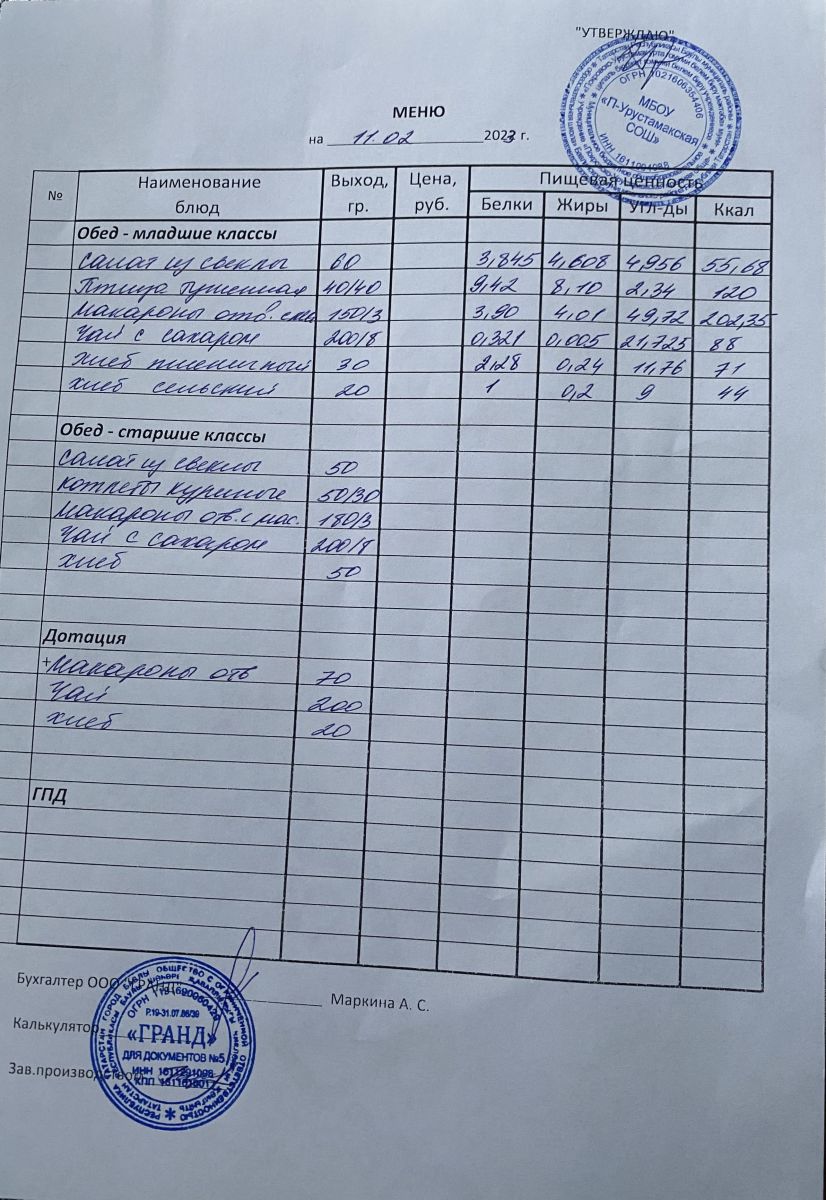 "УТВЕРЖДАЮ"
МБОУ
«П-Урустамакская
СОШ»
ОГРН 1021606354406
ИНН 1611004088
МЕНЮ
на 11.02 2023 г.
№ Наименование блюд Выход, гр. Цена, руб. Пищевая ценность
Белки Жиры Угл-ды Ккал
Обед - младшие классы
Салат из свеклы 60 3,845 4,608 4,956 55,68
Птица тушенная 40/40 9,42 8,10 2,34 120
Макароны отв. 150/3 3,90 4,01 49,72 202,35
Чай с сахаром 200/8 0,321 0,005 21,725 88
хлеб пшеничный 30 2,28 0,24 11,76 71
хлеб сельский 20 1 0,2 9 44
Обед - старшие классы
Салат из свеклы 50
Котлеты куриные 50/30
Макароны отв. с мас. 180/3
Чай с сахаром 200/8
хлеб 50
Дотация
+Макароны отв 70
Чай 200
хлеб 20
ГПД
Бухгалтер ООО Маркина А. С.
Калькулятор
Зав.производством
«ГРАНД»
ДЛЯ ДОКУМЕНТОВ №5